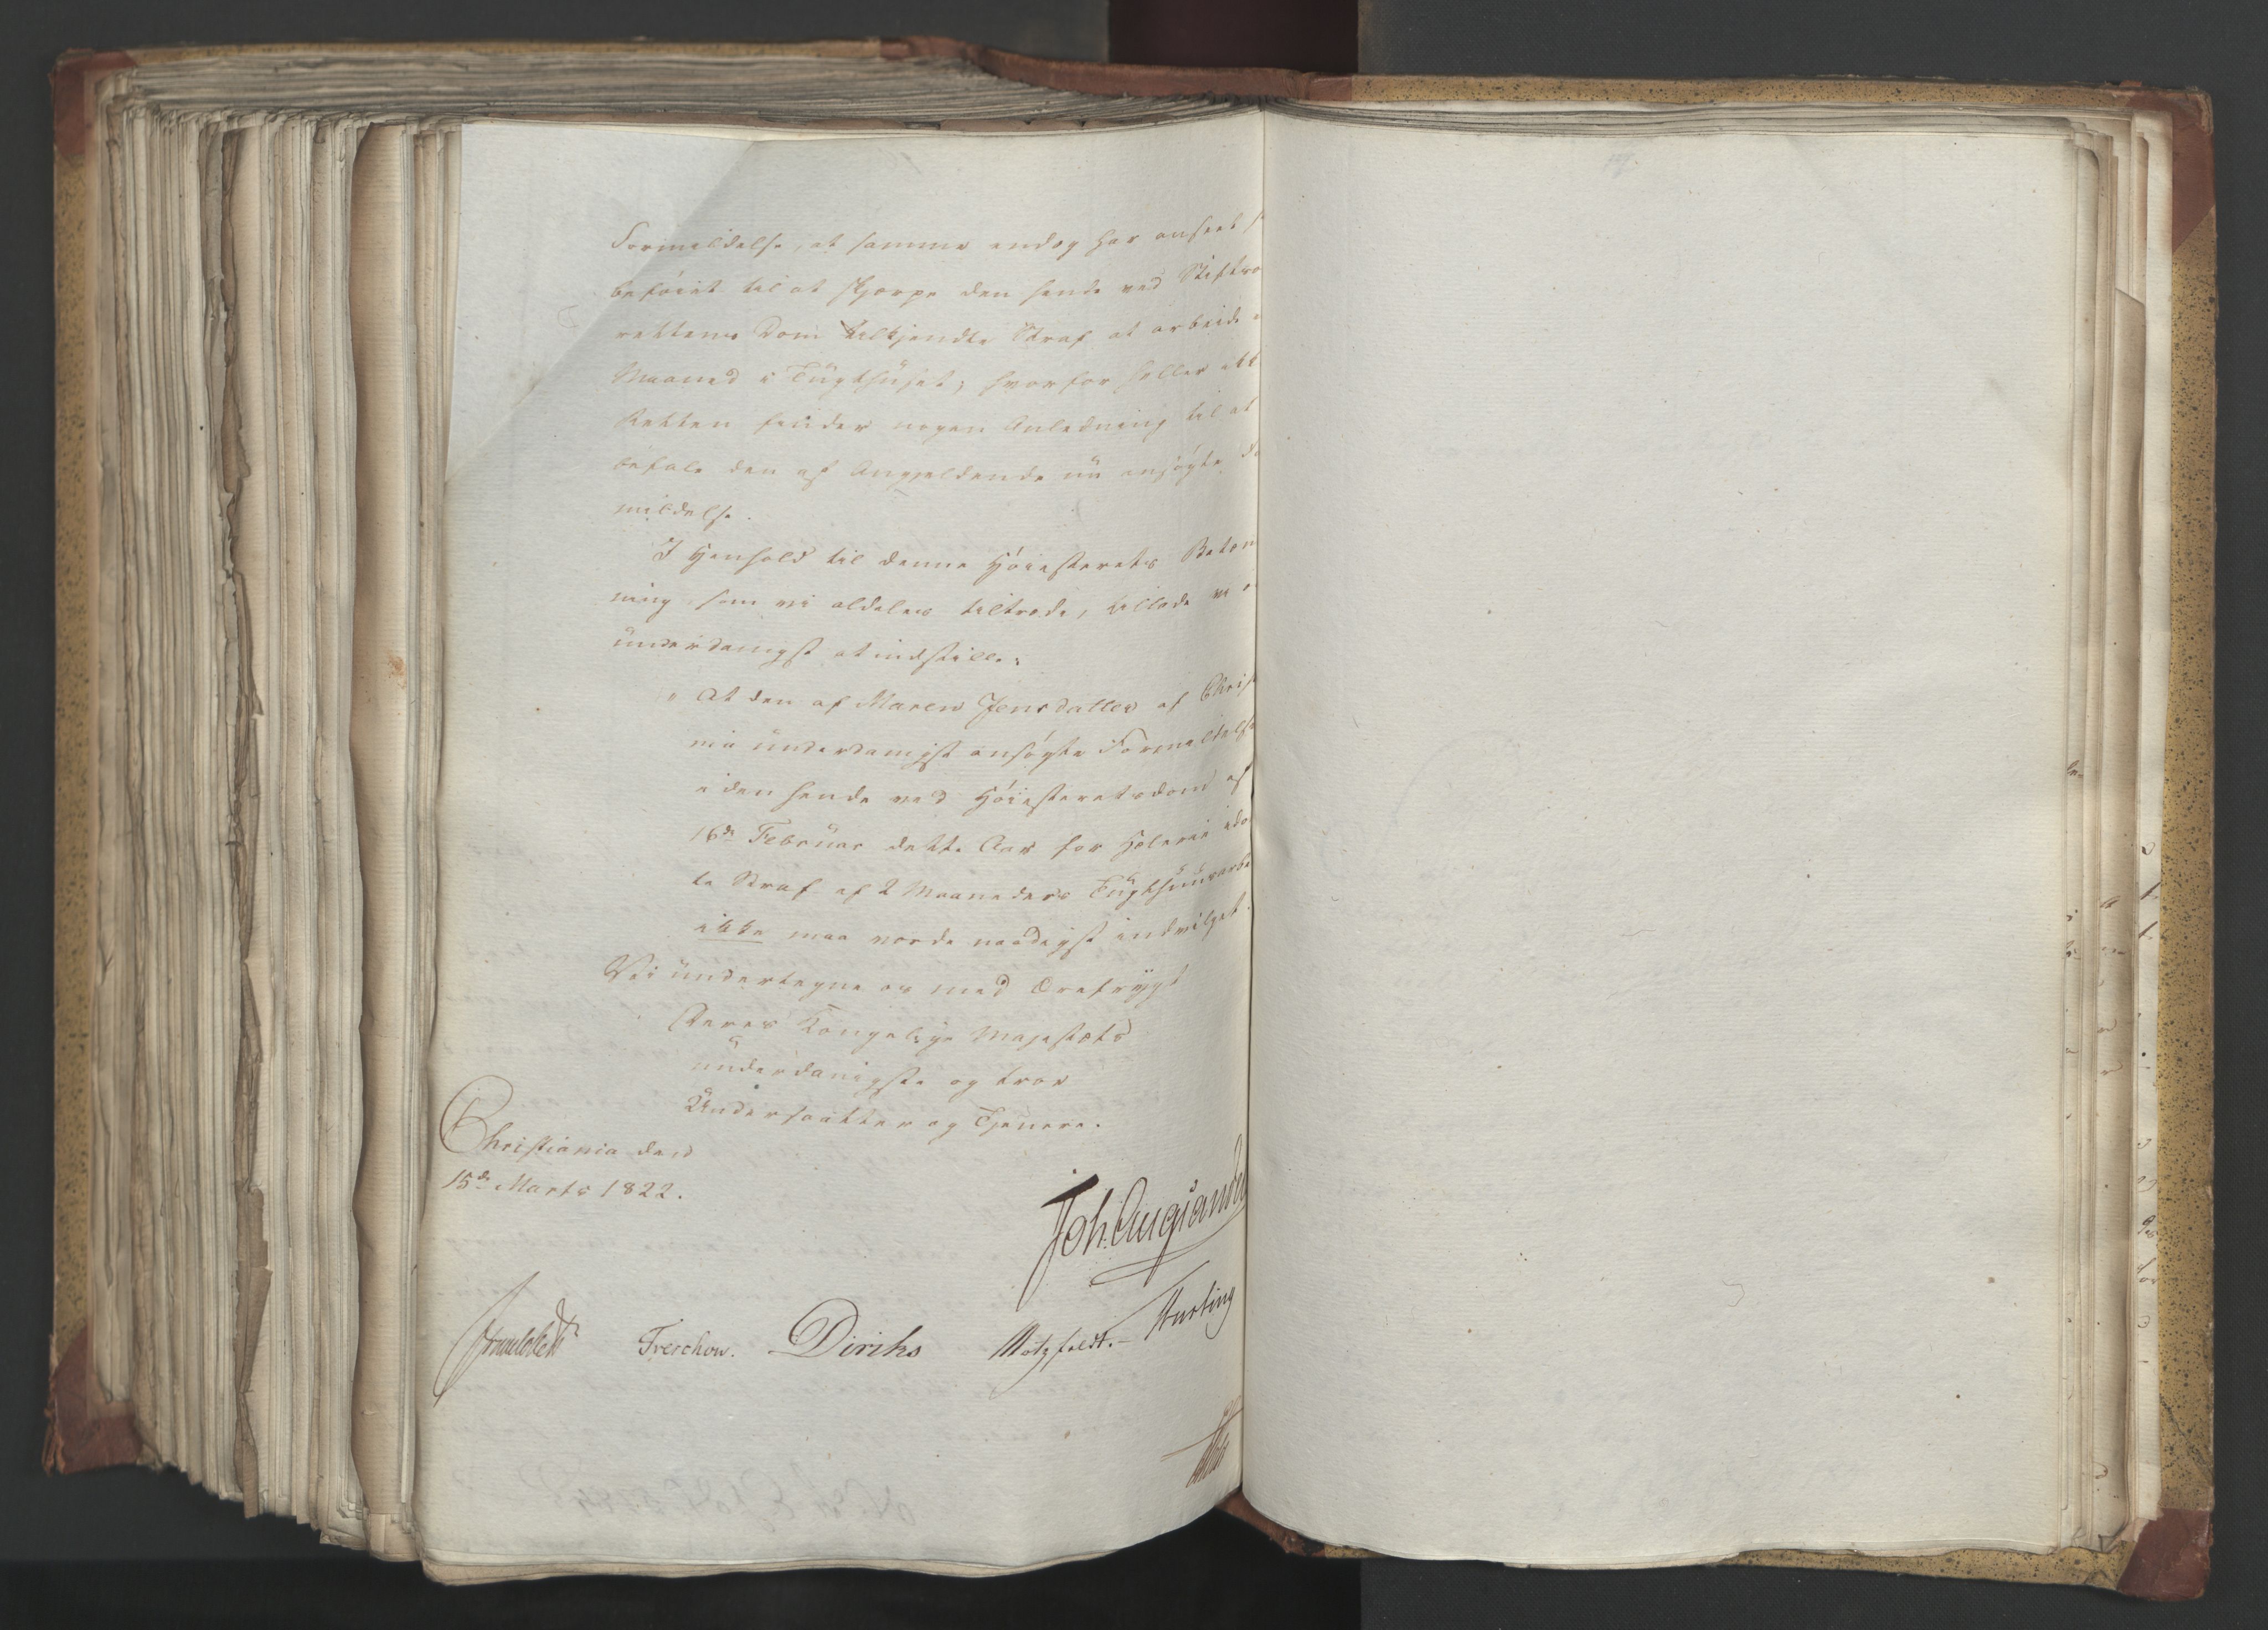 Formildelse, at samme endog har anseet s
beføiet til at skjærpe den hende ved Stifts-
rettens Dom tilkjendte Straf at arbeide
Maaned i Tügthüset; hvorfor heller ikke
Retten finder nogen Anledning til at
befale den af Angjeldende nü ansøgte
mildelse.
I Henhold til denne Høiesterets Betæn
ning som vi aldeles tiltræde, tillade vi o
ünderdanigst at indstille:
" At den af Maren Jensdatter af Chris
nia ünderdanigst ansøgte Formildelse
i den hende ved Høiesteretsdom af
16de Februar dette Aar for Heleri ido
te Straf af 2 Maaneders Tügthüüsarbe
ikke maa vorde naadigst indvilget.
Vi ündertegne os med Ærefrygt
Deres Kongelige Majestæts
ünderdanigste og troe
Undersaatter og Tjenere.
Christiania den
15de Marts 1822.
Joh: Aug: Sande
Treschow. Diriks Motzfeldt. Sibbern